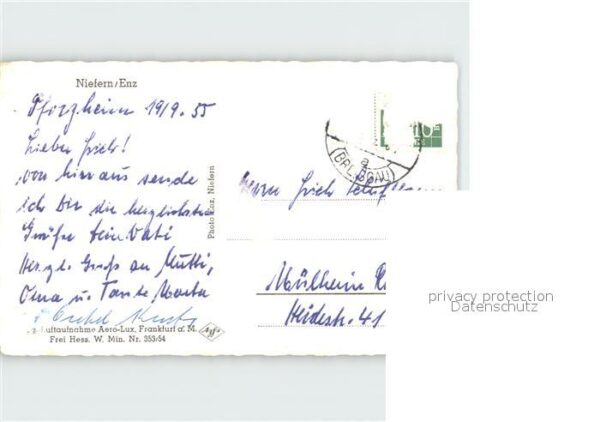 Niefern/Enz
Pforzheim 19/9. 55
Lieber Erich!
von hier aus sende
ich Dir die herzlichsten
Grüße Dein Vati
Herzl. Gruß an Mutti,
Oma u. Tante Marta
Photo Enz, Niefern
Luftaufnahme Aero-Lux, Frankfurt a. M.
Frei Hess. W. Min. Nr. 353/54
Agfa
a
Herrn Erich
Mülheim
Heidestr. 41
privacy protection
Datenschutz